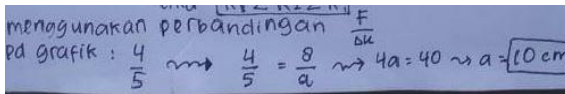 menggunakan perbandingan F/Δx
pd grafik : 4/5 ⇝ 4/5 = 8/a ⇝ 4a = 40 ⇝ a = 10 cm